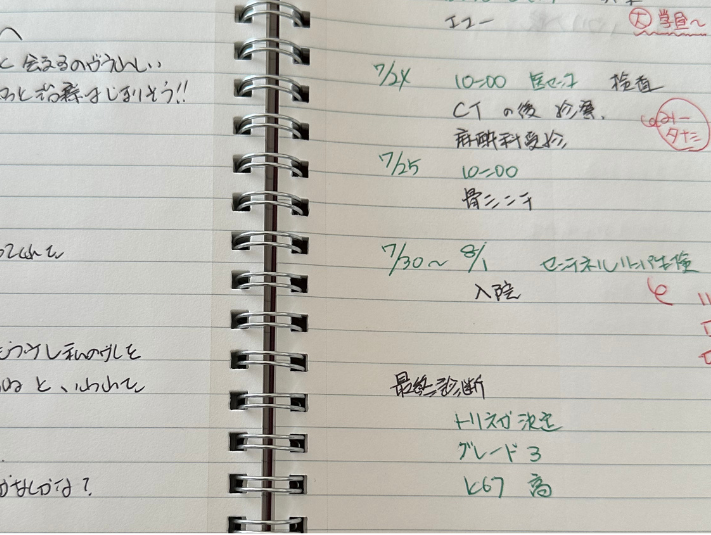 へ
に会えるのがうれしい
っと治療はじまりそう!!
ってくれて
もうけし私のがしを
ねと、いわれて
がなしかな?
エコー
大 学園〜
7/24 10:00 医セン 検査
CTの後 診察、
麻酔科受診
7/25 10:00
骨シンチ
7/30〜8/1 センチネルリンパ生検
入院
最終診断
トリネガ決定
グレード3
ki67 高